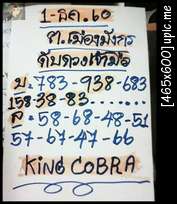 1-มีค.60
ต.เมืองมังกร
คัมดวงเข้ามือ
บ.-783-938-683
158-38-83
ล=58-68-48-51
57-67-47-66
KING COBRA
[465x600] upic.me